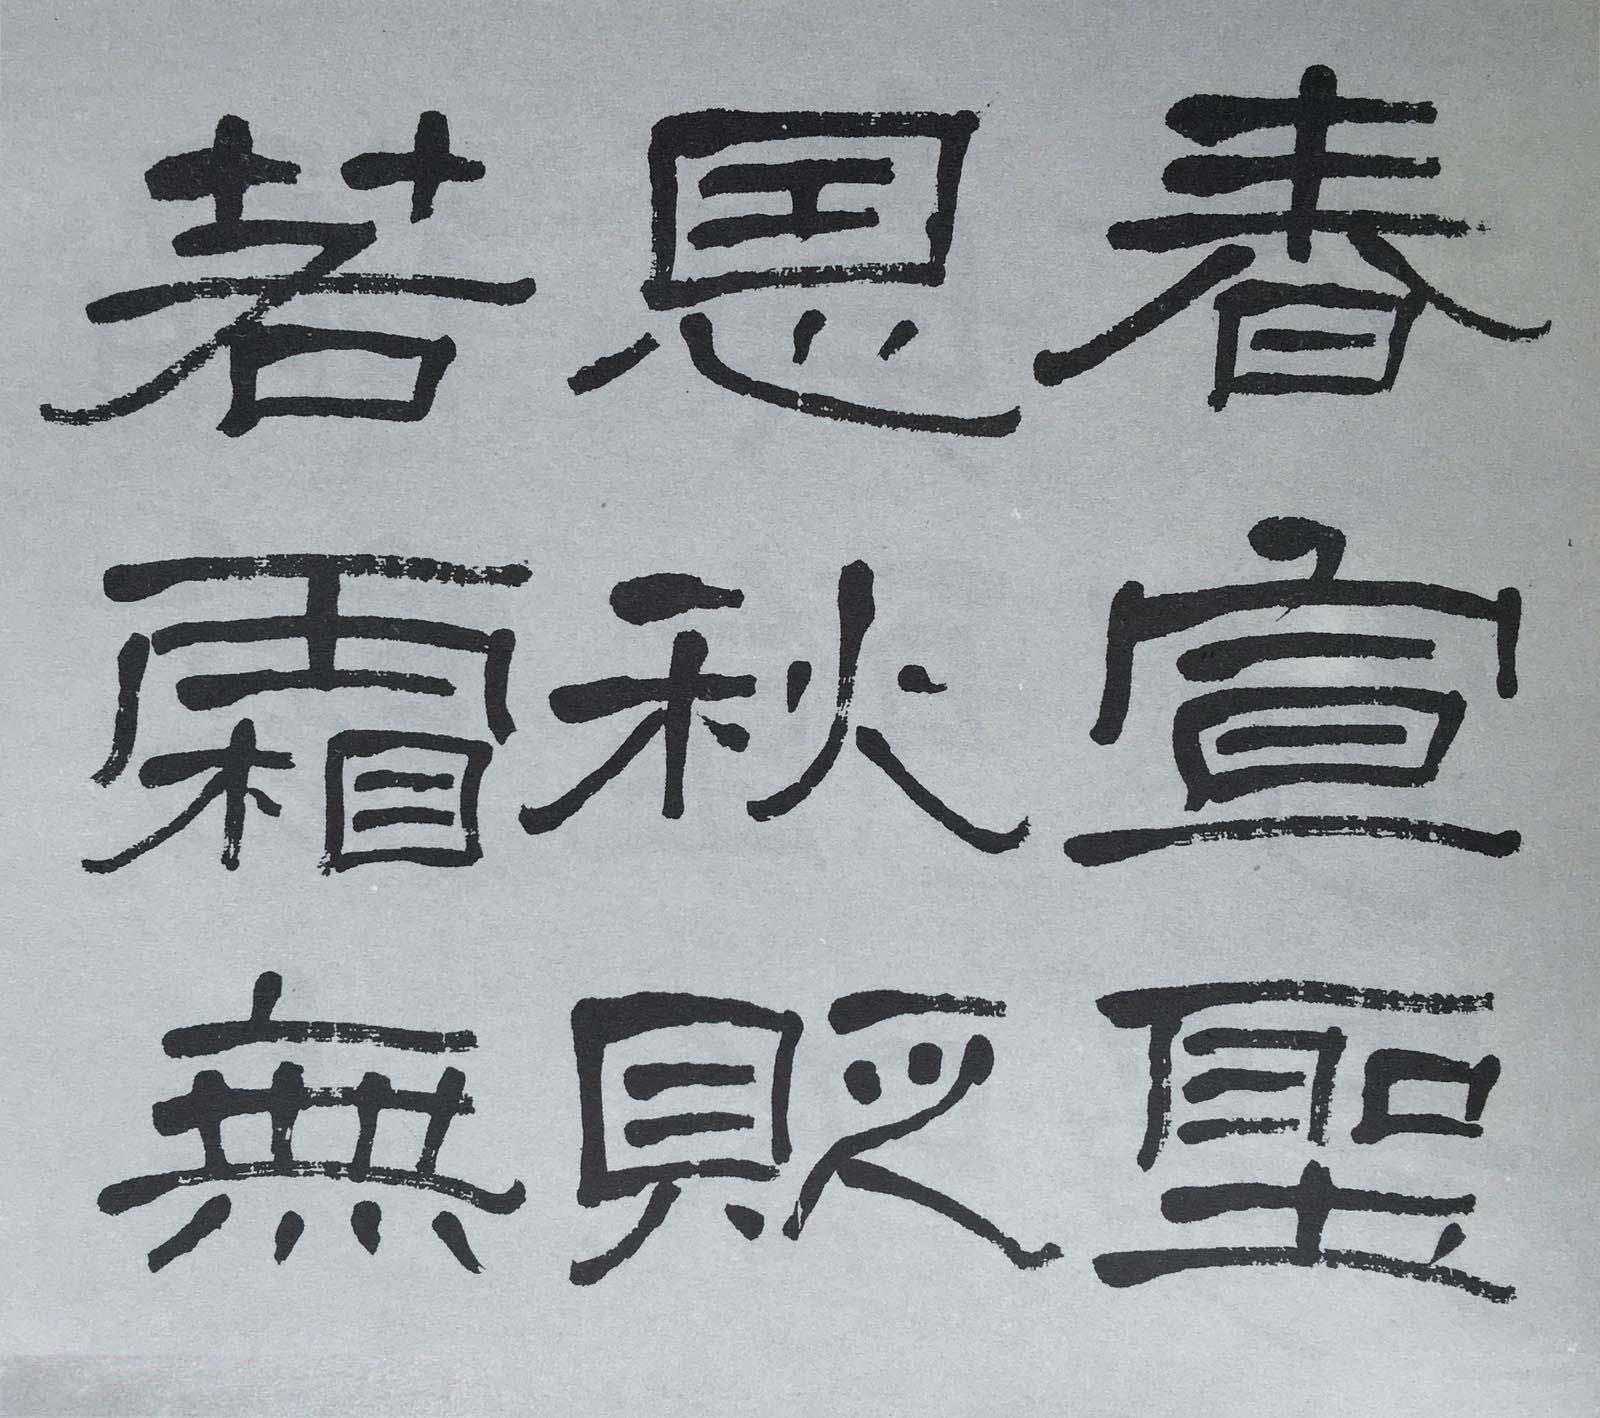 春宣聖
恩秋貶
若霜無